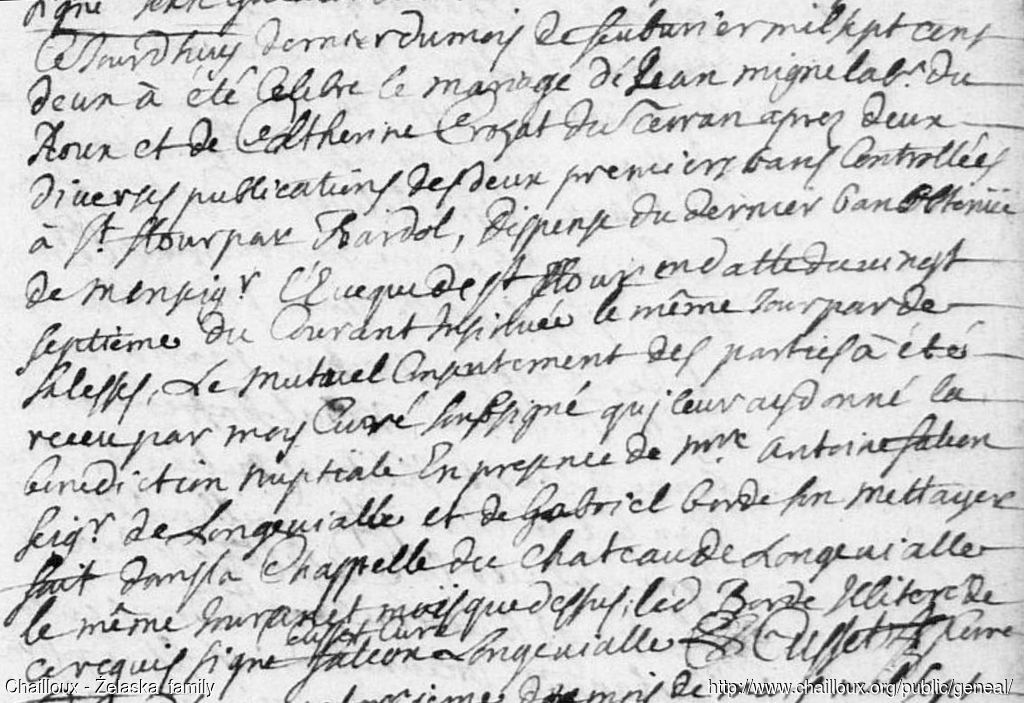 signe
Ce Jourdhuy dernier du mois de feuburier mil sept cent
deux à été Celebre le mariage de Jean migne labr. du
Roux et de Catherine Crozat du Terran aprez deux
diverses publications des deux premiers bans Controllées
à st. flour par Bardol, dispense du dernier ban obtenüe
de monsigr l'Eueque de st flour en datte du vingt
septieme du Courant Insinuée le même Jour par de
salesses, Le mutuel Consentement des parties à été
receu par moy Curé soussigné qui leur ay donné la
benediction nuptiale En presence de mre antoine falcon
seigr de Longevialle et de Gabriel borde son mettayer
fait dans la Chappelle du chateau de Longevialle
le même Jour an et mois que dessus, led Borde Illiteré de
ce requis signe falcon Longevialle Cusset Curé
Cusset Curé
du mois de
Chailloux - Želaska family
http://www.chailloux.org/public/geneal/